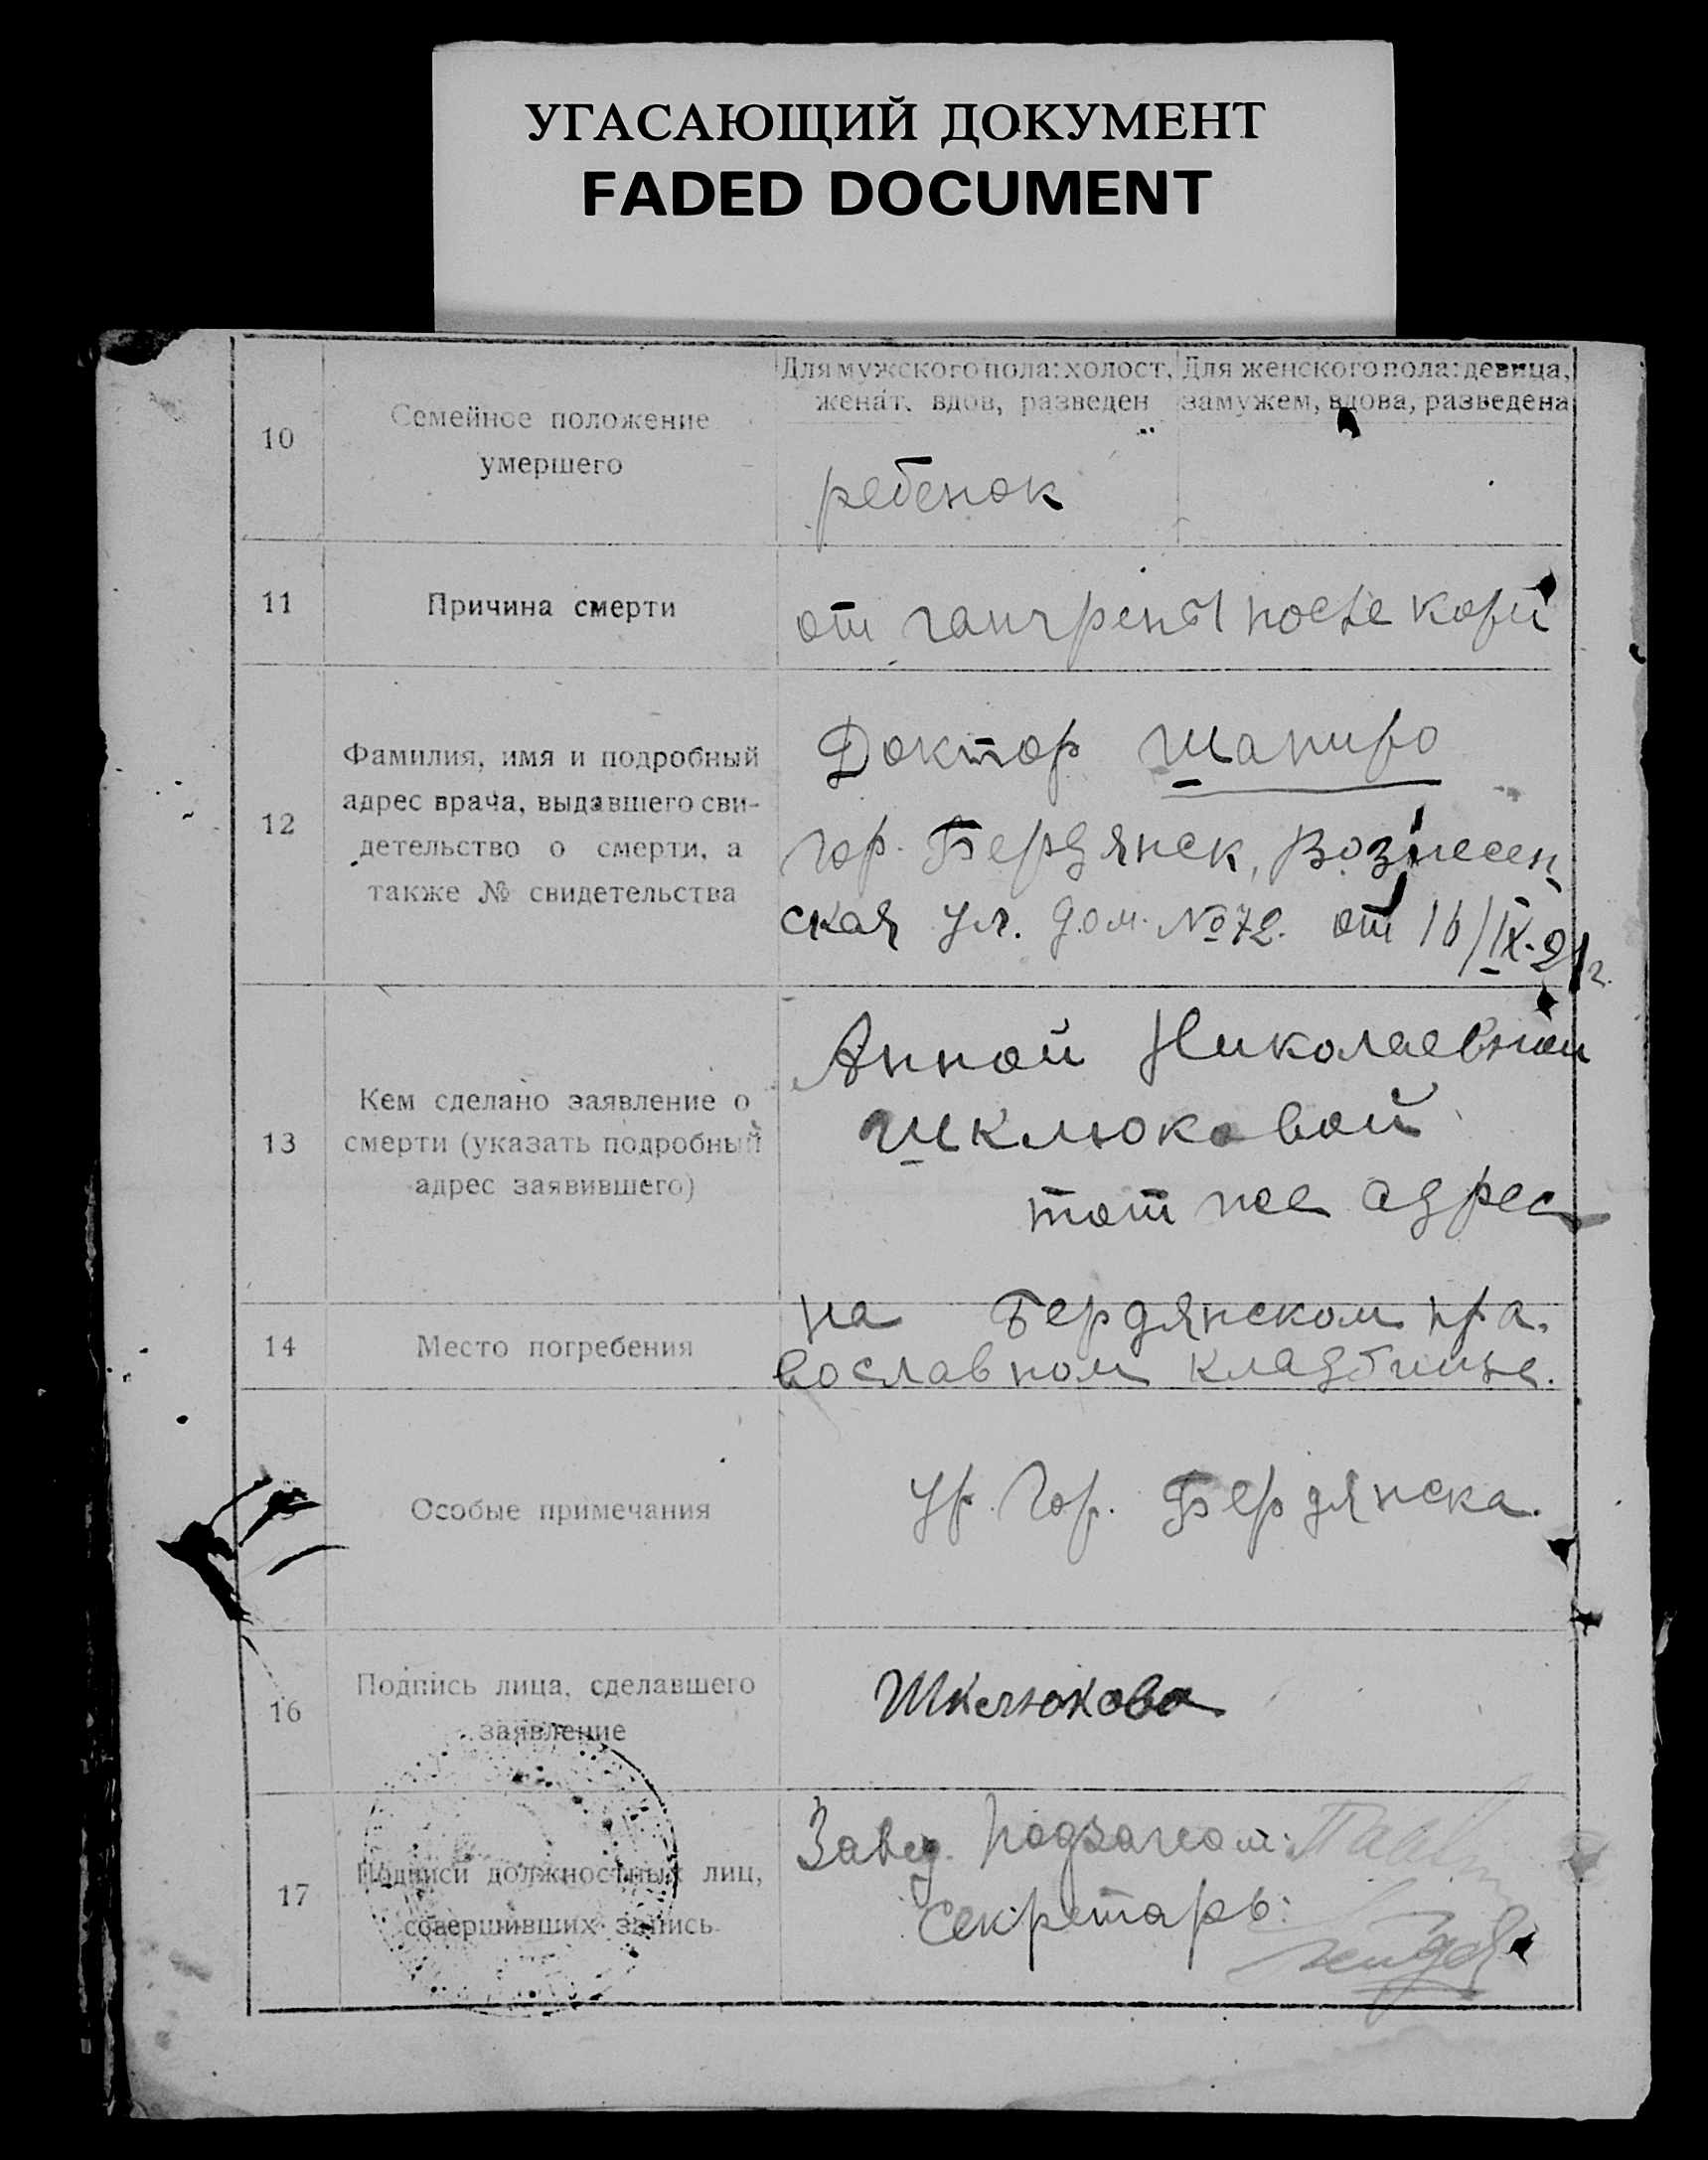 УГАСАЮЩИЙ ДОКУМЕНТ
FADED DOCUMENT
10
Семейное положение
умершего
Для мужского пола: холост,
женат, вдов, разведен
Для женского пола: девица,
замужем, вдова, разведена
ребенок
11
Причина смерти
от гангрены после кори
12
Фамилия, имя и подробный
адрес врача, выдавшего сви-
детельство о смерти, а
также № свидетельства
Доктор Шапиро
гор. Бердянск, Вознесен-
ская ул. дом. № 72. от 16/IX-21г.
13
Кем сделано заявление о
смерти (указать подробный
адрес заявившего)
Анной Николаевной
Шклюковой
тот же адрес
14
Место погребения
на Бердянском пра-
вославном кладбище.
Особые примечания
ур. гор. Бердянска.
16
Подпись лица, сделавшего
заявление
Шклюкова
17
Подписи должностных лиц,
совершивших запись
Завед. Подзагсом:
Секретарь: